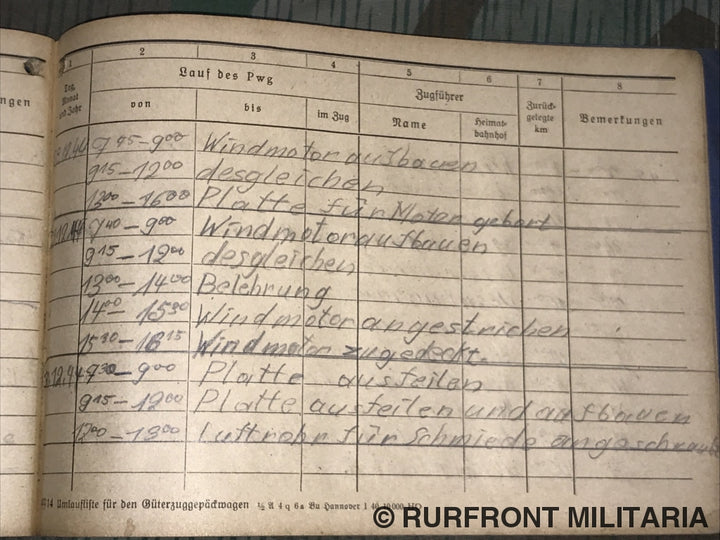 1 2 3 4 5 6 7 8
ngen Tag, Monat und Jahr Lauf des Pwg Zugführer Zurück-gelegte km Bemerkungen
von bis im Zug Name Heimat-bahnhof
12.44 7⁴⁵–9⁰⁰ Windmotor aufbauen
9¹⁵–12⁰⁰ desgleichen
13⁰⁰–16⁰⁰ Platte für Motor gebort
12.44 7⁴⁰–9⁰⁰ Windmotoraufbauen
9¹⁵–12⁰⁰ desgleichen
13⁰⁰–14⁰⁰ Belehrung
14⁰⁰–15³⁰ Windmotor angestrichen
15³⁰–16¹⁵ Windmotor zugedeckt.
12.44 7³⁰–9⁰⁰ Platte ausfeilen
9¹⁵–12⁰⁰ Platte ausfeilen und aufbauen
12⁰⁰–13⁰⁰ Luftrohr für Schmiede angeschraub
14 Umlaufliste für den Güterzuggepäckwagen ½ A 4 q 6a Bu Hannover 1 40 10 000 HO
© RURFRONT MILITARIA